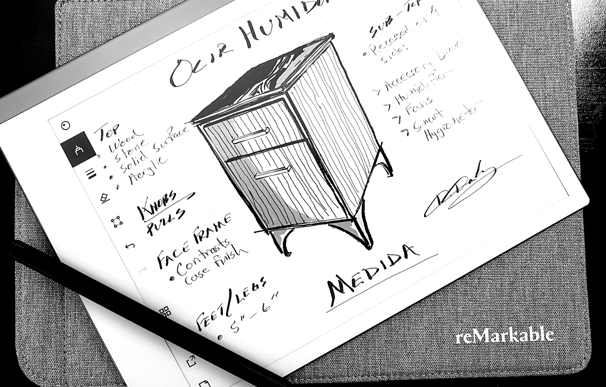 OCIR HUMIDOR
TOP
• Wood
• Stone
• Solid Surface
• Acrylic
KNOBS
PULLS
FACE FRAME
• Contrasts
case finish
FEET/LEGS
• 5"-6"
SUB-TOP
• Recessed on 4
sides
> Accessory
> Humidifier
> Fans
> Smart
Hygrometer
MEDIDA
reMarkable